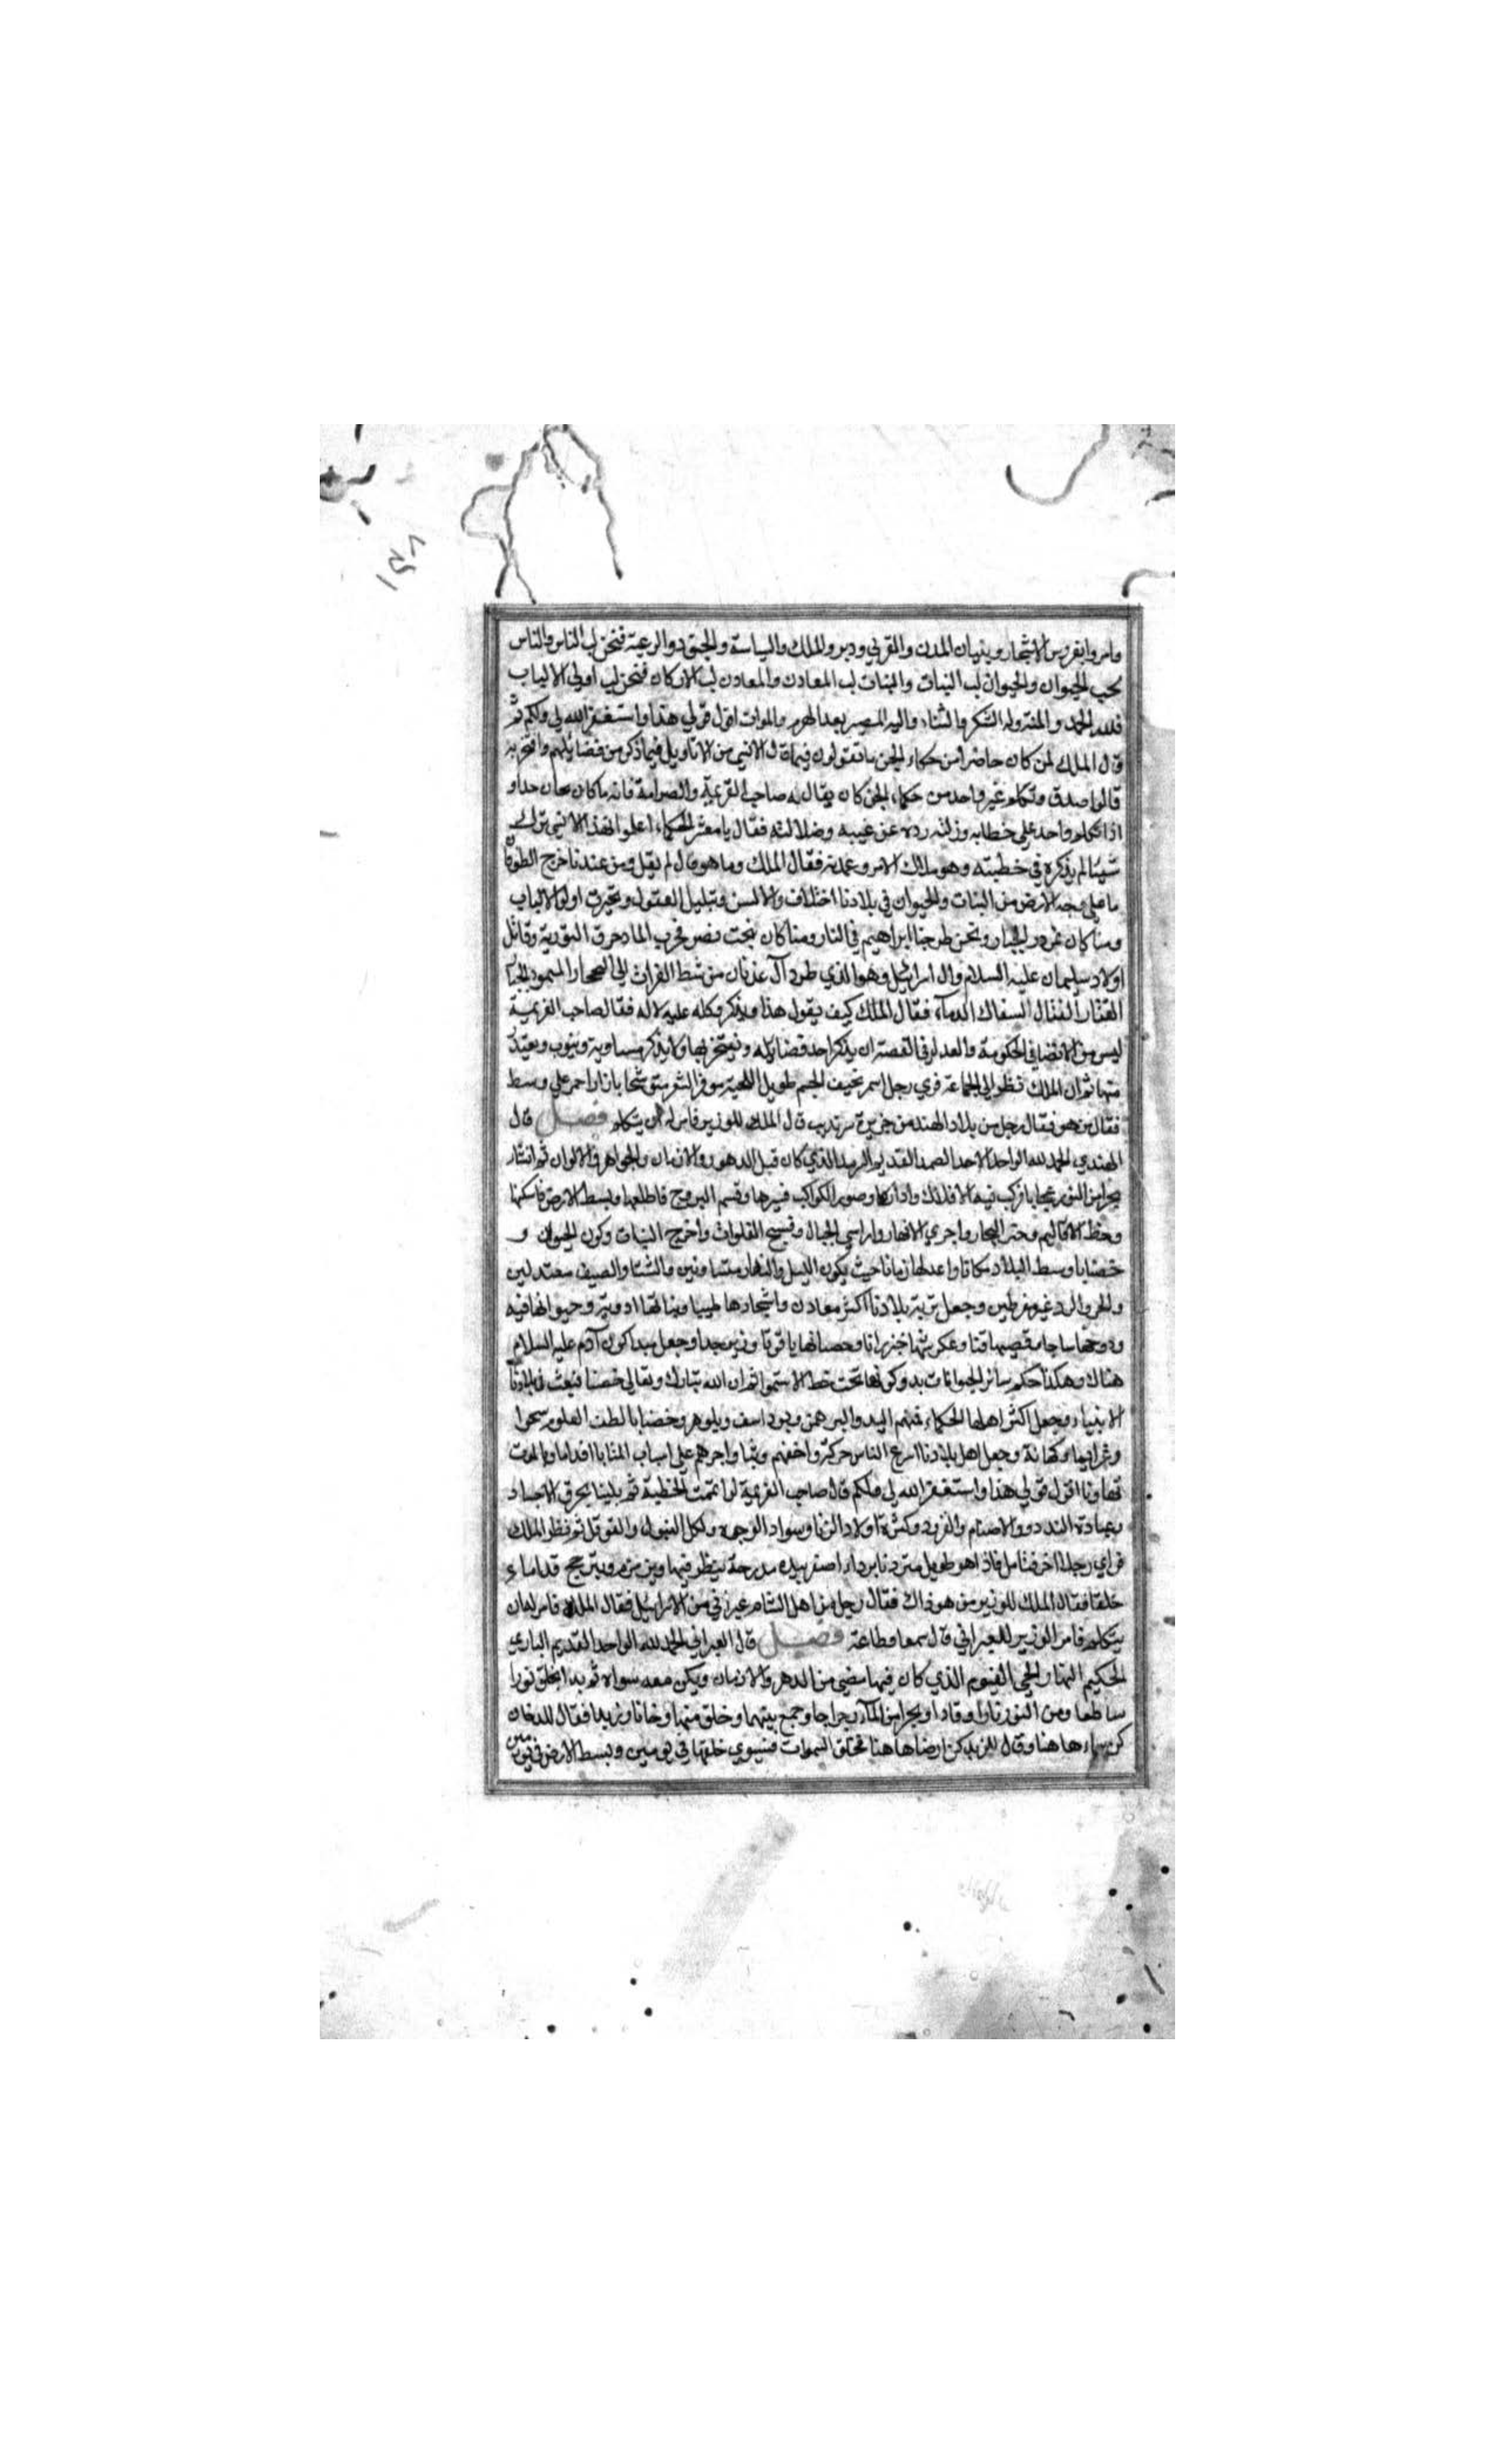 وامروا بغروس الاشجار وبنيان المدن والقرى ودبروا الملك والسياسة والجنود والرعية فنحن لب الناس والناس
لب الحيوان والحيوان لب النبات والنبات لب المعادن والمعادن لب الاركان فنحن لب اولى الالباب
فلله الحمد والمنة وله الشكر والثناء واليه المصير بعد الهرم والموات اقول قولي هذا واستغفر الله لي ولكم ثم
قال الملك لمن كان حاضرا من حكماء الجن ما تقولون فيما قال الانسي من الاقاويل فيما ذكر من فضايلهم وافتخر به
قالوا صدق وتكلم غير واحد من حكماء الجن كان يقال له صاحب الغريمة والصرامة فانه ما كان
اذا تكلم واحد على خطابه وزلته رده عن غيبه وضلالته فقال يا معشر الحكماء اعلموا ان هذا الانسي ترك
شيئا لم يذكره في خطبته وهو ملاك الامر وعمدته فقال الملك وما هو قال لم يقل ومن عندنا خرج الطوفان
ما على وجه الارض من النبات والحيوان في بلادنا اختلاف والالسن وتبلبل العقول وتحيرت اولوا الالباب
ومنا كان نمرود الجبار ونحن طرحنا ابراهيم في النار ومنا كان بخت نصر فخرب الماد حرق التورية وقاتل
اولاد سليمان عليه السلام وال اسرائيل وهو الذي طرد آل عدنان من شط الفرات الى الصحار المسمود الجبار
القتار القتال السفاك الدماء فقال الملك كيف يقول هذا ويذكر وكله عليه لا له فقال صاحب الغريمة
ليس من الانصاف الحكومة والعدل في القصة ان يذكر احد فضايله ويفتخر بها ولا يذكر مساويه ويتوب ويعتذر
منها ثم ان الملك نظر الى الجماعة فرى رجل اسمر نحيف الجسم طويل اللحية موفر الشعر متوشحا بازار احمر على وسط
فقال من هو فقال رجل من بلاد الهند من جزيرة سرنديب قال الملك للوزير فامر له ان يتكلم فصل قال
الهندي الحمد لله الواحد الاحد الصمد القديم الذي كان قبل الدهور والازمان والجواهر والالوان ثم انشأ
بحرا من النور عجابا فركب فيه الافلاك وادارها وصور الكواكب فسيرها وقسم البروج فاطلعها وبسط الارض فاسكنها
وخط الاقاليم وحفر البحار واجري الانهار وارسي الجبال وفسح الفلوات واخرج النبات وكون الحيوان و
خصنا باوسط البلاد مكانا واعدلها زمانا حيث يكون الليل والنهار متساويين والشتا والصيف معتدلين
والحر والبرد غير مفرطين وجعل تربة بلادنا اكثر معادن واشجارها طيبا ونباتها ادوية وحيوانها فيه
ودوحها ساجا وقصبها قنا وعكرشها خيزرانا وحصبائها ياقوتا وزبرجدا وجعل مبدا كون آدم عليه السلام
هناك وهكذا حكم سائر الحيوانات بدو كونها تحت خط الاستوا ثم ان الله تبارك وتعالى خصنا فبعث في بلادنا
الانبياء وجعل اكثر اهلها الحكماء فمنهم البد والبرهمن وبوداسف وبلوهر وخصنا بالطف العلوم سحرا
وعزايما وكهانة وجعل اهل بلادنا اسرع الناس حركة واخفهم وثبا واجرهم على اسباب المنايا اقداما وبالموت
تهاونا اقول قولي هذا واستغفر الله لي ولكم قال صاحب الغريمة لو اتممت الخطبة ثم بلينا بحرق الاجساد
وعبادة البددو والاصنام والقرود وكثرة اولاد الزنا وسواد الوجوه واكل التنبول والفوفل ثم نظر الملك
فراي رجلا اخر فتامل فاذا هو طويل متردنا برداء اصفر بيده مدرجة ينظر فيها ويزمزم ويترجح قداما و
خلفا فقال الملك للوزير من هو ذاك فقال رجل من اهل الشام عبراني من آل اسرائيل فقال الملك فامر له ان
يتكلم فامر الوزير للعبراني قال سمعا وطاعة فصل قال العبراني الحمد لله الواحد القديم الباري
الحكيم القهار الحي القيوم الذي كان فيما مضي من الدهر والازمان ويكن معه سواه ثم بدا بخلق نورا
ساطعا ومن النور نارا وقادا وبحرا من الماء رجراجا وجمع بينهما وخلق منهما دخانا وزبدا فقال للدخان
كن سماء ها هنا وقال للزبد كن ارضا ها هنا فخلق السموات فسوي خلقها في يومين وبسط الارض في يومين